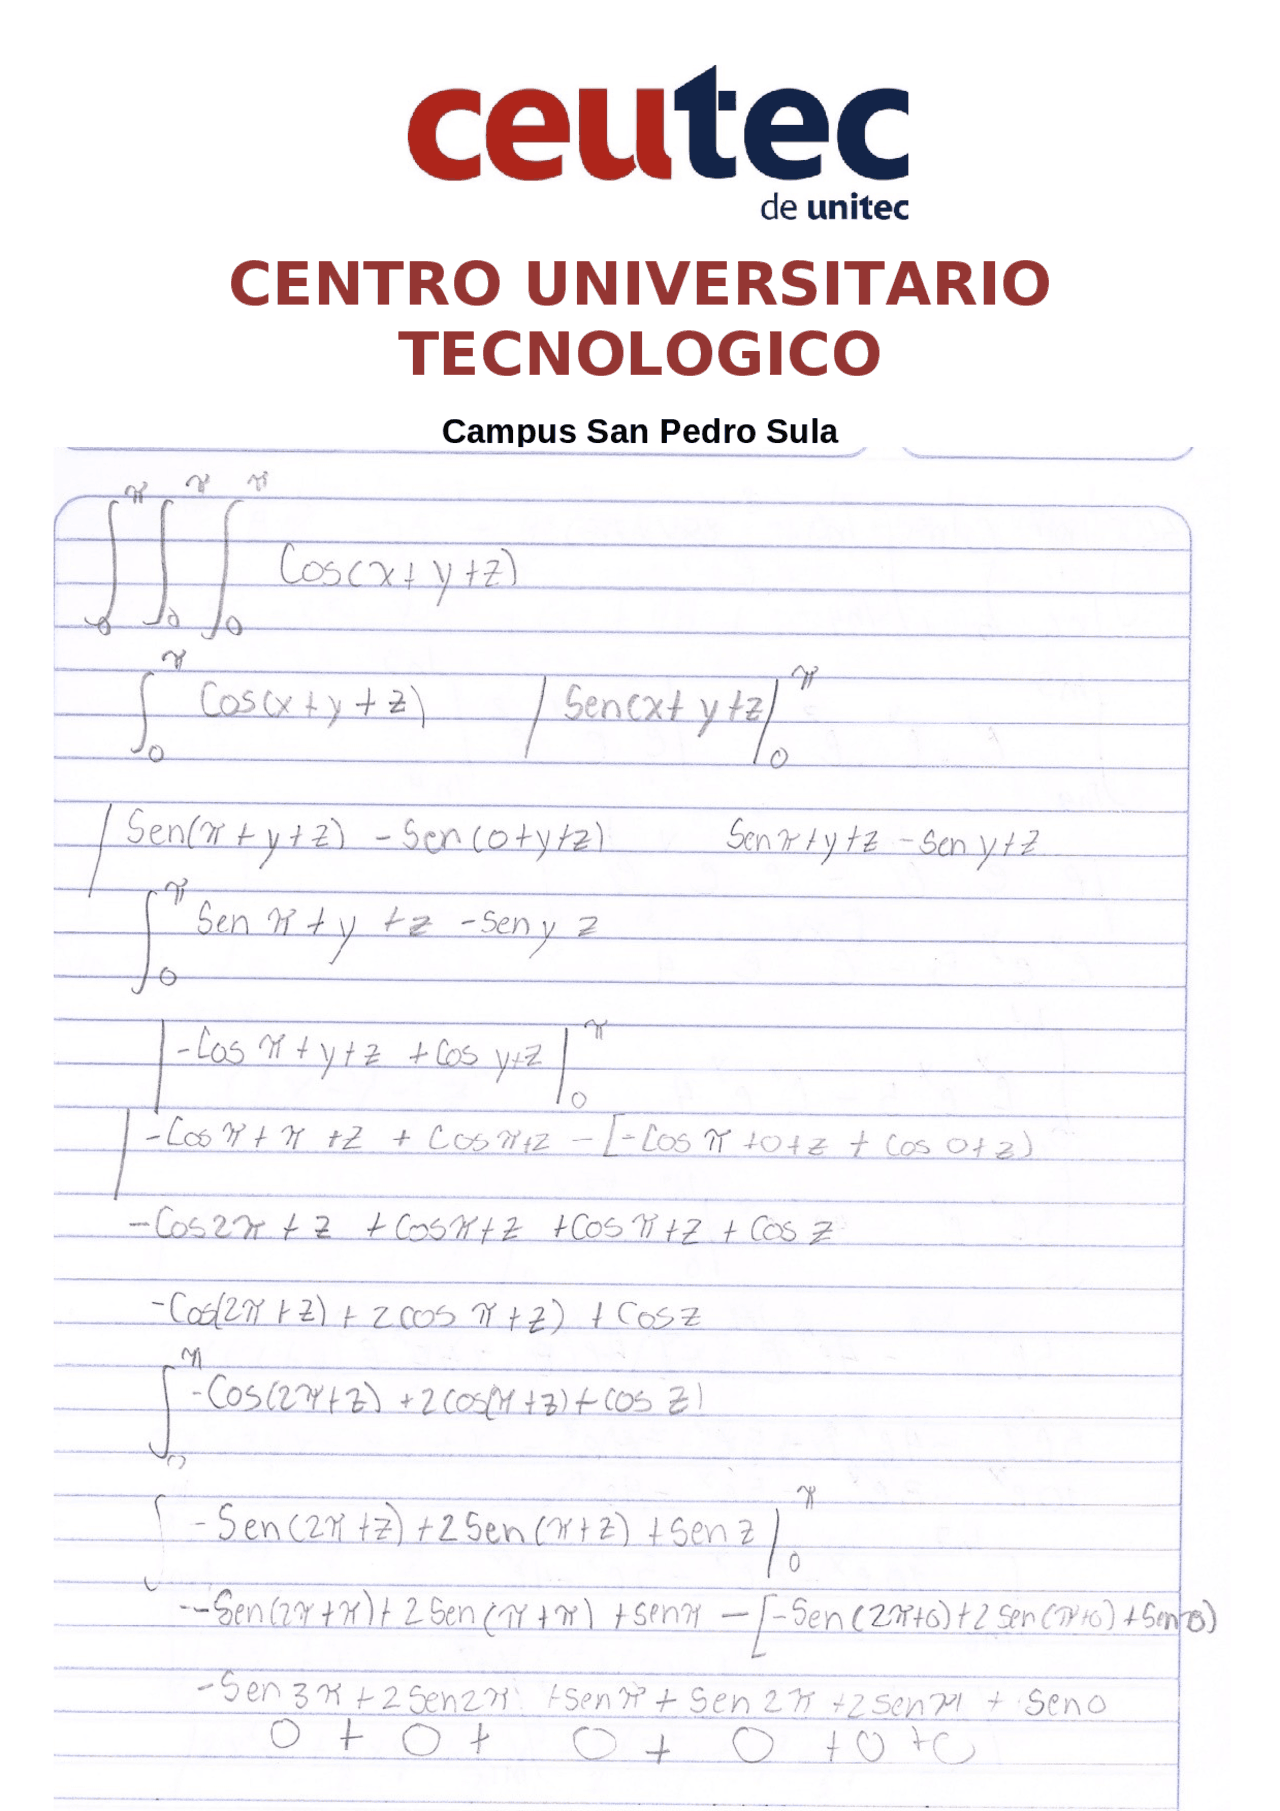 ceutec
de unitec
CENTRO UNIVERSITARIO
TECNOLOGICO
Campus San Pedro Sula
∫₀^π ∫₀^π ∫₀^π Cos(x+y+z)
∫₀^π Cos(x+y+z) | Sen(x+y+z) |₀^π
| Sen(π+y+z) - Sen(0+y+z) Sen π+y+z - Sen y+z
∫₀^π Sen π+y+z - Sen y z
| -Cos π+y+z + Cos y+z |₀^π
| -Cos π+π+z + Cos π+z - [-Cos π+0+z + Cos 0+z)
-Cos 2π+z + Cos π+z + Cos π+z + Cos z
-Cos(2π+z) + 2 cos π+z) + Cos z
∫₀^π -Cos(2π+z) + 2 Cos(π+z) + cos z)
∫ -Sen(2π+z) + 2 Sen(π+z) + Sen z |₀^π
--Sen(2π+π) + 2 Sen(π+π) + Sen π - [-Sen(2π+0) + 2 Sen(π+0) + Sen 0)
-Sen 3π + 2 Sen 2π + Sen π + Sen 2π + 2 Sen π + Sen 0
0 + 0 + 0 + 0 + 0 + 0